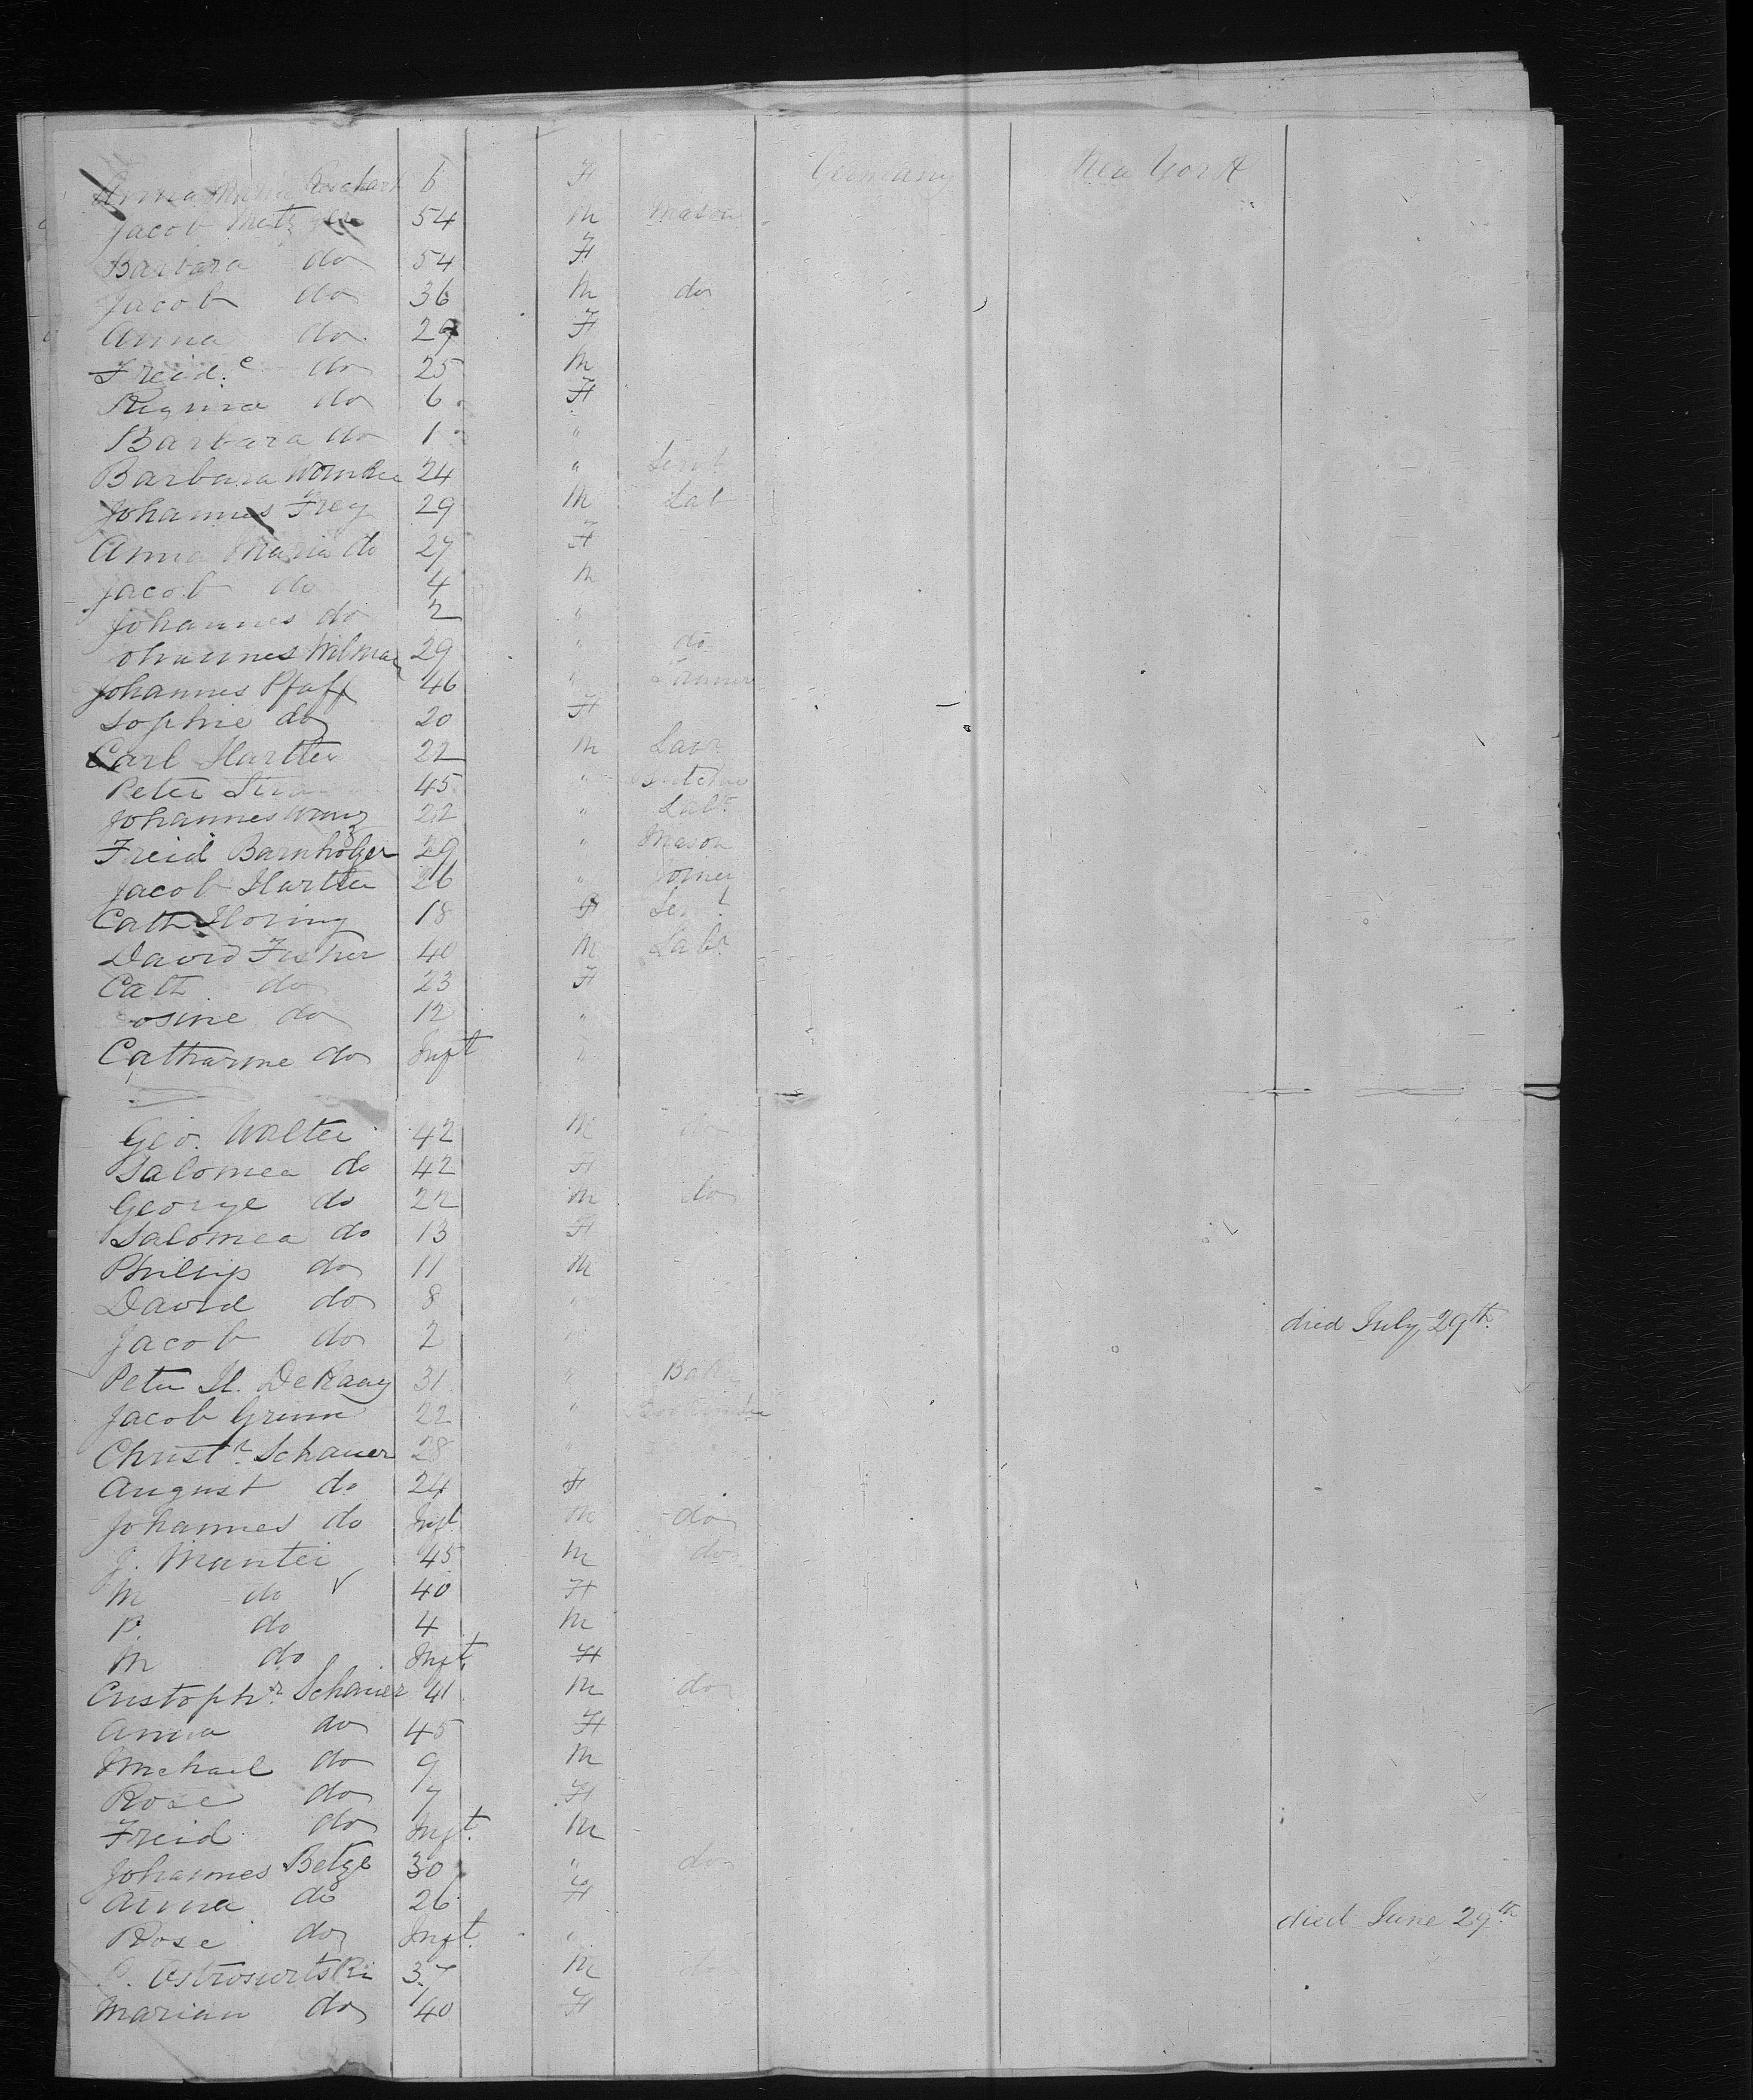 Anna Maria 6 F Germany New York
Jacob Metzger 54 M Mason
Barbara do 54 F
Jacob do 36 M do
Anna do 27 F
Freid.e do 25 M
Regina do 6 F
Barbara do 1 "
Barbara 24 " Servt
Johannes Frey 29 M Lab
Anna Maria do 27 F
Jacob do 4 M
Johannes do 2 "
ohannes Wilman 29 " do
Johannes Pfaff 46 "
Sophie do 20 F
Carl Hartter 22 M Labr
Peter 45 " Butcher
Johannes 22 " Labr
Freid Barnholzer 29 " Mason
Jacob Hartter 26 " Joiner
Cath Horing 18 F Servt
David Fisher 40 M Labr
Cath do 23 F
osine do 12 "
Catharine do Inft "
Geo. Walter 42 M do
Salomea do 42 F
George do 22 M do
Salomea do 13 F
Phillip do 11 M
David do 8 "
Jacob do 2 " died July 29th
Peter H. DeRaay 31 "
Jacob Grimm 22 "
Christr Schauer 28 "
August do 24 F
Johannes do Inft M do
J. Mantei 45 M do
M do 40 F
P. do 4 M
M do Inft. F
Cristophr Schauer 41 M do
Anna do 45 F
Michael do 9 M
Rose do 7 F
Freid do Inft. M
Johannes Betge 30 " do
Anna do 26 F
Rose do Inft. " died June 29th
P. M do
Marian do 40 F